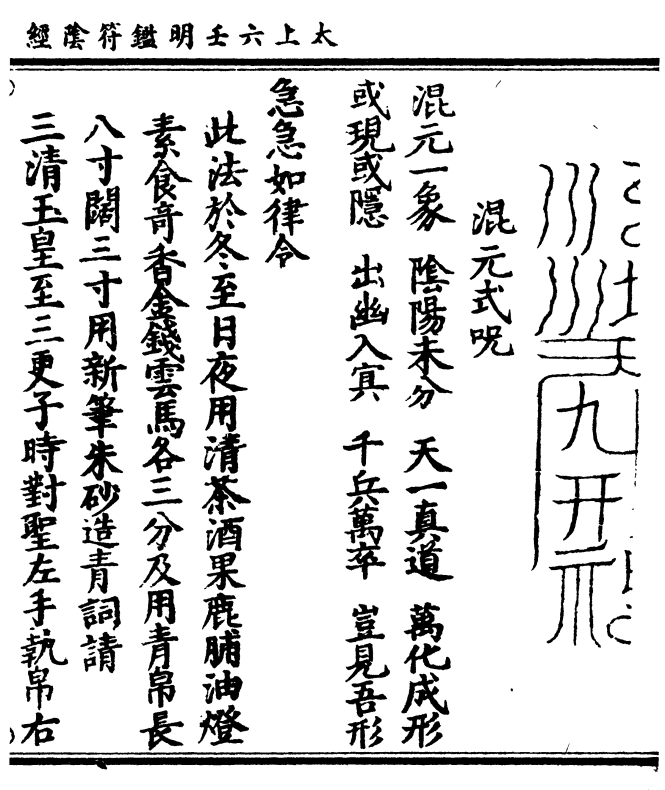 太上六壬明鑑符陰經
混元式呪
混元一象　陰陽未分　天一真道　萬化成形
或現或隱　出幽入寅　千兵萬卒　豈見吾形
急急如律令
此法於冬至日夜用清茶酒果鹿脯油燈
素食奇香金錢雲馬各三分及用青帛長
八寸闊三寸用新筆朱砂造青詞請
三清玉皇至三更子時對聖左手執帛右